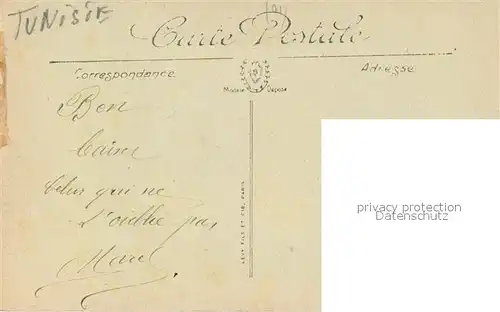 TUNISIE
Carte Postale
Correspondance
Adresse
Modèle Déposé
Bon
baiser
Celui qui ne
t'oublie pas
Marcel
LÉVY FILS ET CIE, PARIS
privacy protection
Datenschutz